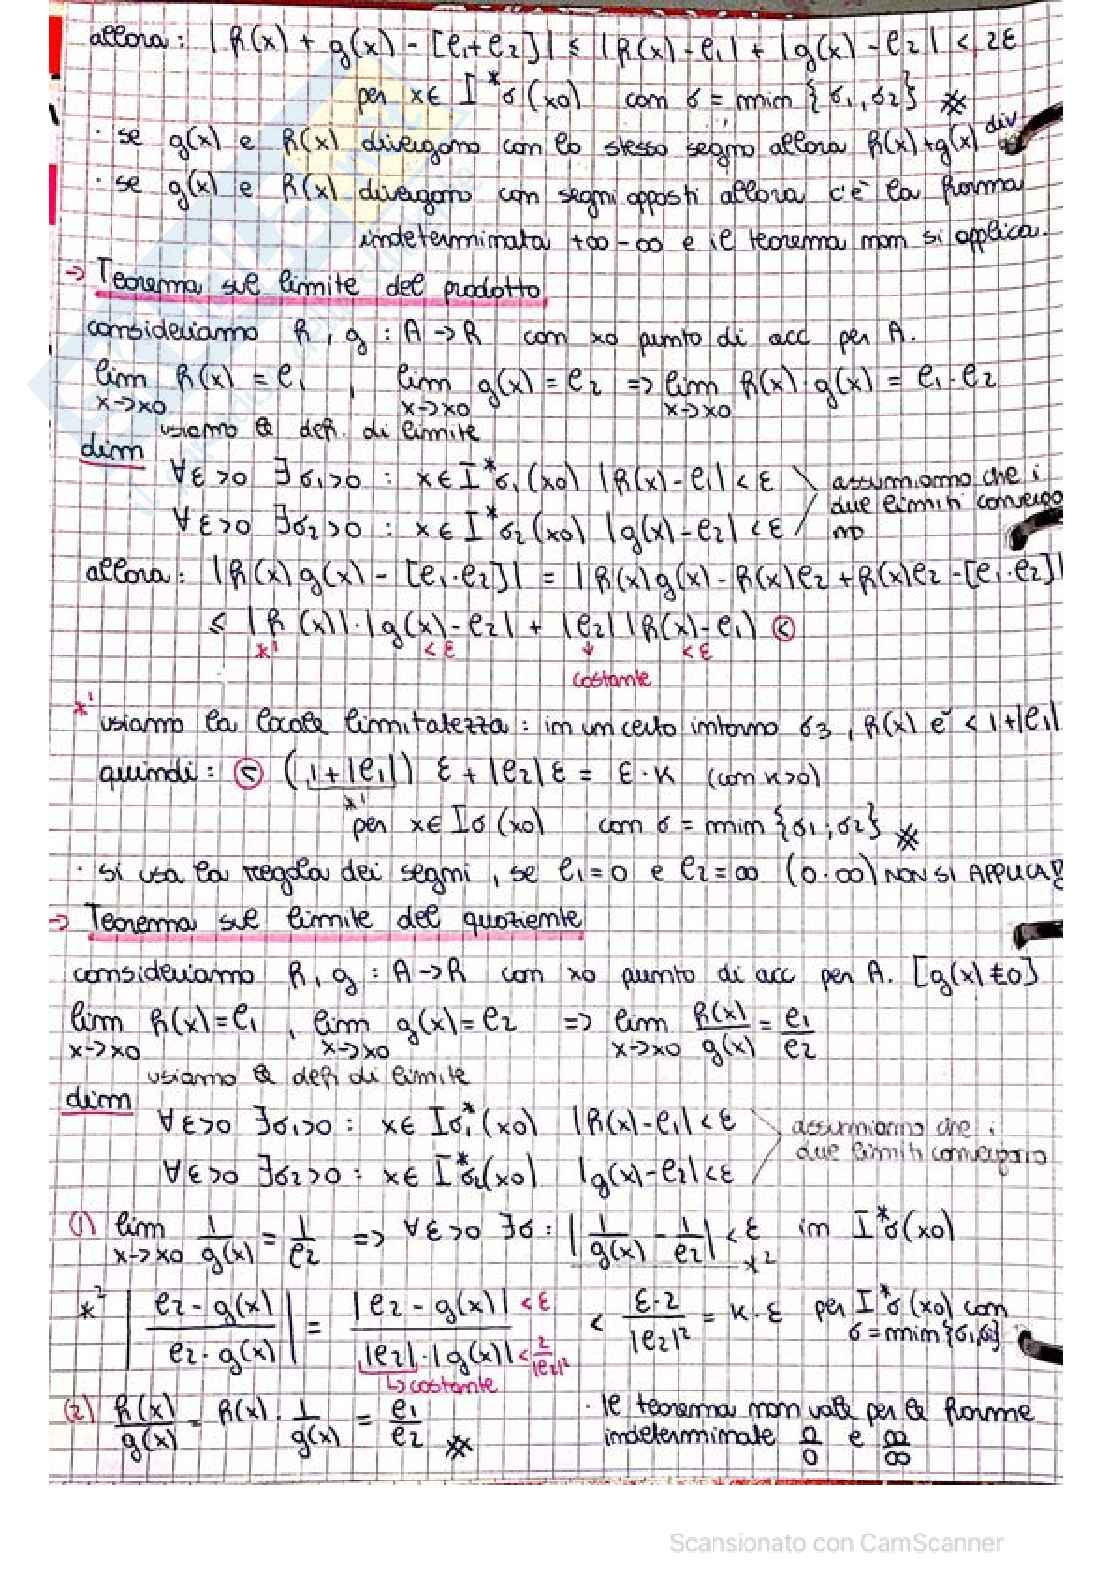 allora: |f(x) + g(x) - [l1+l2]| ≤ |f(x) - l1| + |g(x) - l2| < 2ε
per x∈ I*σ(x0) con σ = min {σ1, σ2} ※
· se g(x) e f(x) divergono con lo stesso segno allora f(x)+g(x) div
· se g(x) e f(x) divergono con segni opposti allora c'è la forma
indeterminata +∞-∞ e il teorema non si applica.
→ Teorema sul limite del prodotto
consideriamo f, g : A→R con x0 punto di acc per A.
lim x→x0 f(x) = l1 , lim x→x0 g(x) = l2 => lim x→x0 f(x)·g(x) = l1·l2
usiamo la def. di limite
dim
∀ε>0 ∃σ1>0 : x∈I*σ1(x0) |f(x)-l1| < ε assumiamo che i
∀ε>0 ∃σ2>0 : x∈I*σ2(x0) |g(x)-l2| < ε due limiti convergo
no
allora: |f(x)g(x) - [l1·l2]| = |f(x)g(x) - f(x)l2 + f(x)l2 - [l1·l2]|
≤ |f(x)|·|g(x)-l2| + |l2||f(x)-l1| <
*1 <ε ↓ <ε
costante
*1 usiamo la locale limitatezza: in un certo intorno σ3, f(x) è < 1+|l1|
quindi: < (1+|l1|) ε + |l2|ε = ε·k (con k>0)
*1
per x∈Iσ(x0) con σ = min {σ1; σ2} ※
· si usa la regola dei segni, se l1=0 e l2=∞ (0·∞) NON SI APPLICA!
→ Teorema sul limite del quoziente
consideriamo f, g : A→R con x0 punto di acc per A. [g(x)≠0]
lim x→x0 f(x)=l1 , lim x→x0 g(x)=l2 => lim x→x0 f(x)/g(x) = l1/l2
usiamo la def di limite
dim
∀ε>0 ∃σ1>0 : x∈ Iσ1*(x0) |f(x)-l1|<ε assumiamo che i
∀ε>0 ∃σ2>0 : x∈ I*σ2(x0) |g(x)-l2|<ε due limiti convergano
(1) lim x→x0 1/g(x) = 1/l2 => ∀ε>0 ∃σ : |1/g(x) - 1/l2| < ε in I*σ(x0)
*2
*2 |l2-g(x) / l2·g(x)| = |l2-g(x)| <ε / |l2|·|g(x)| < 2/|l2|² < ε·2/|l2|² = k·ε per I*σ(x0) con
σ=min{σ1,σ2}
↳costante
(2) f(x)/g(x) = f(x)·1/g(x) = l1/l2 ※ · il teorema non vale per le forme
indeterminate 0/0 e ∞/∞
Scansionato con CamScanner